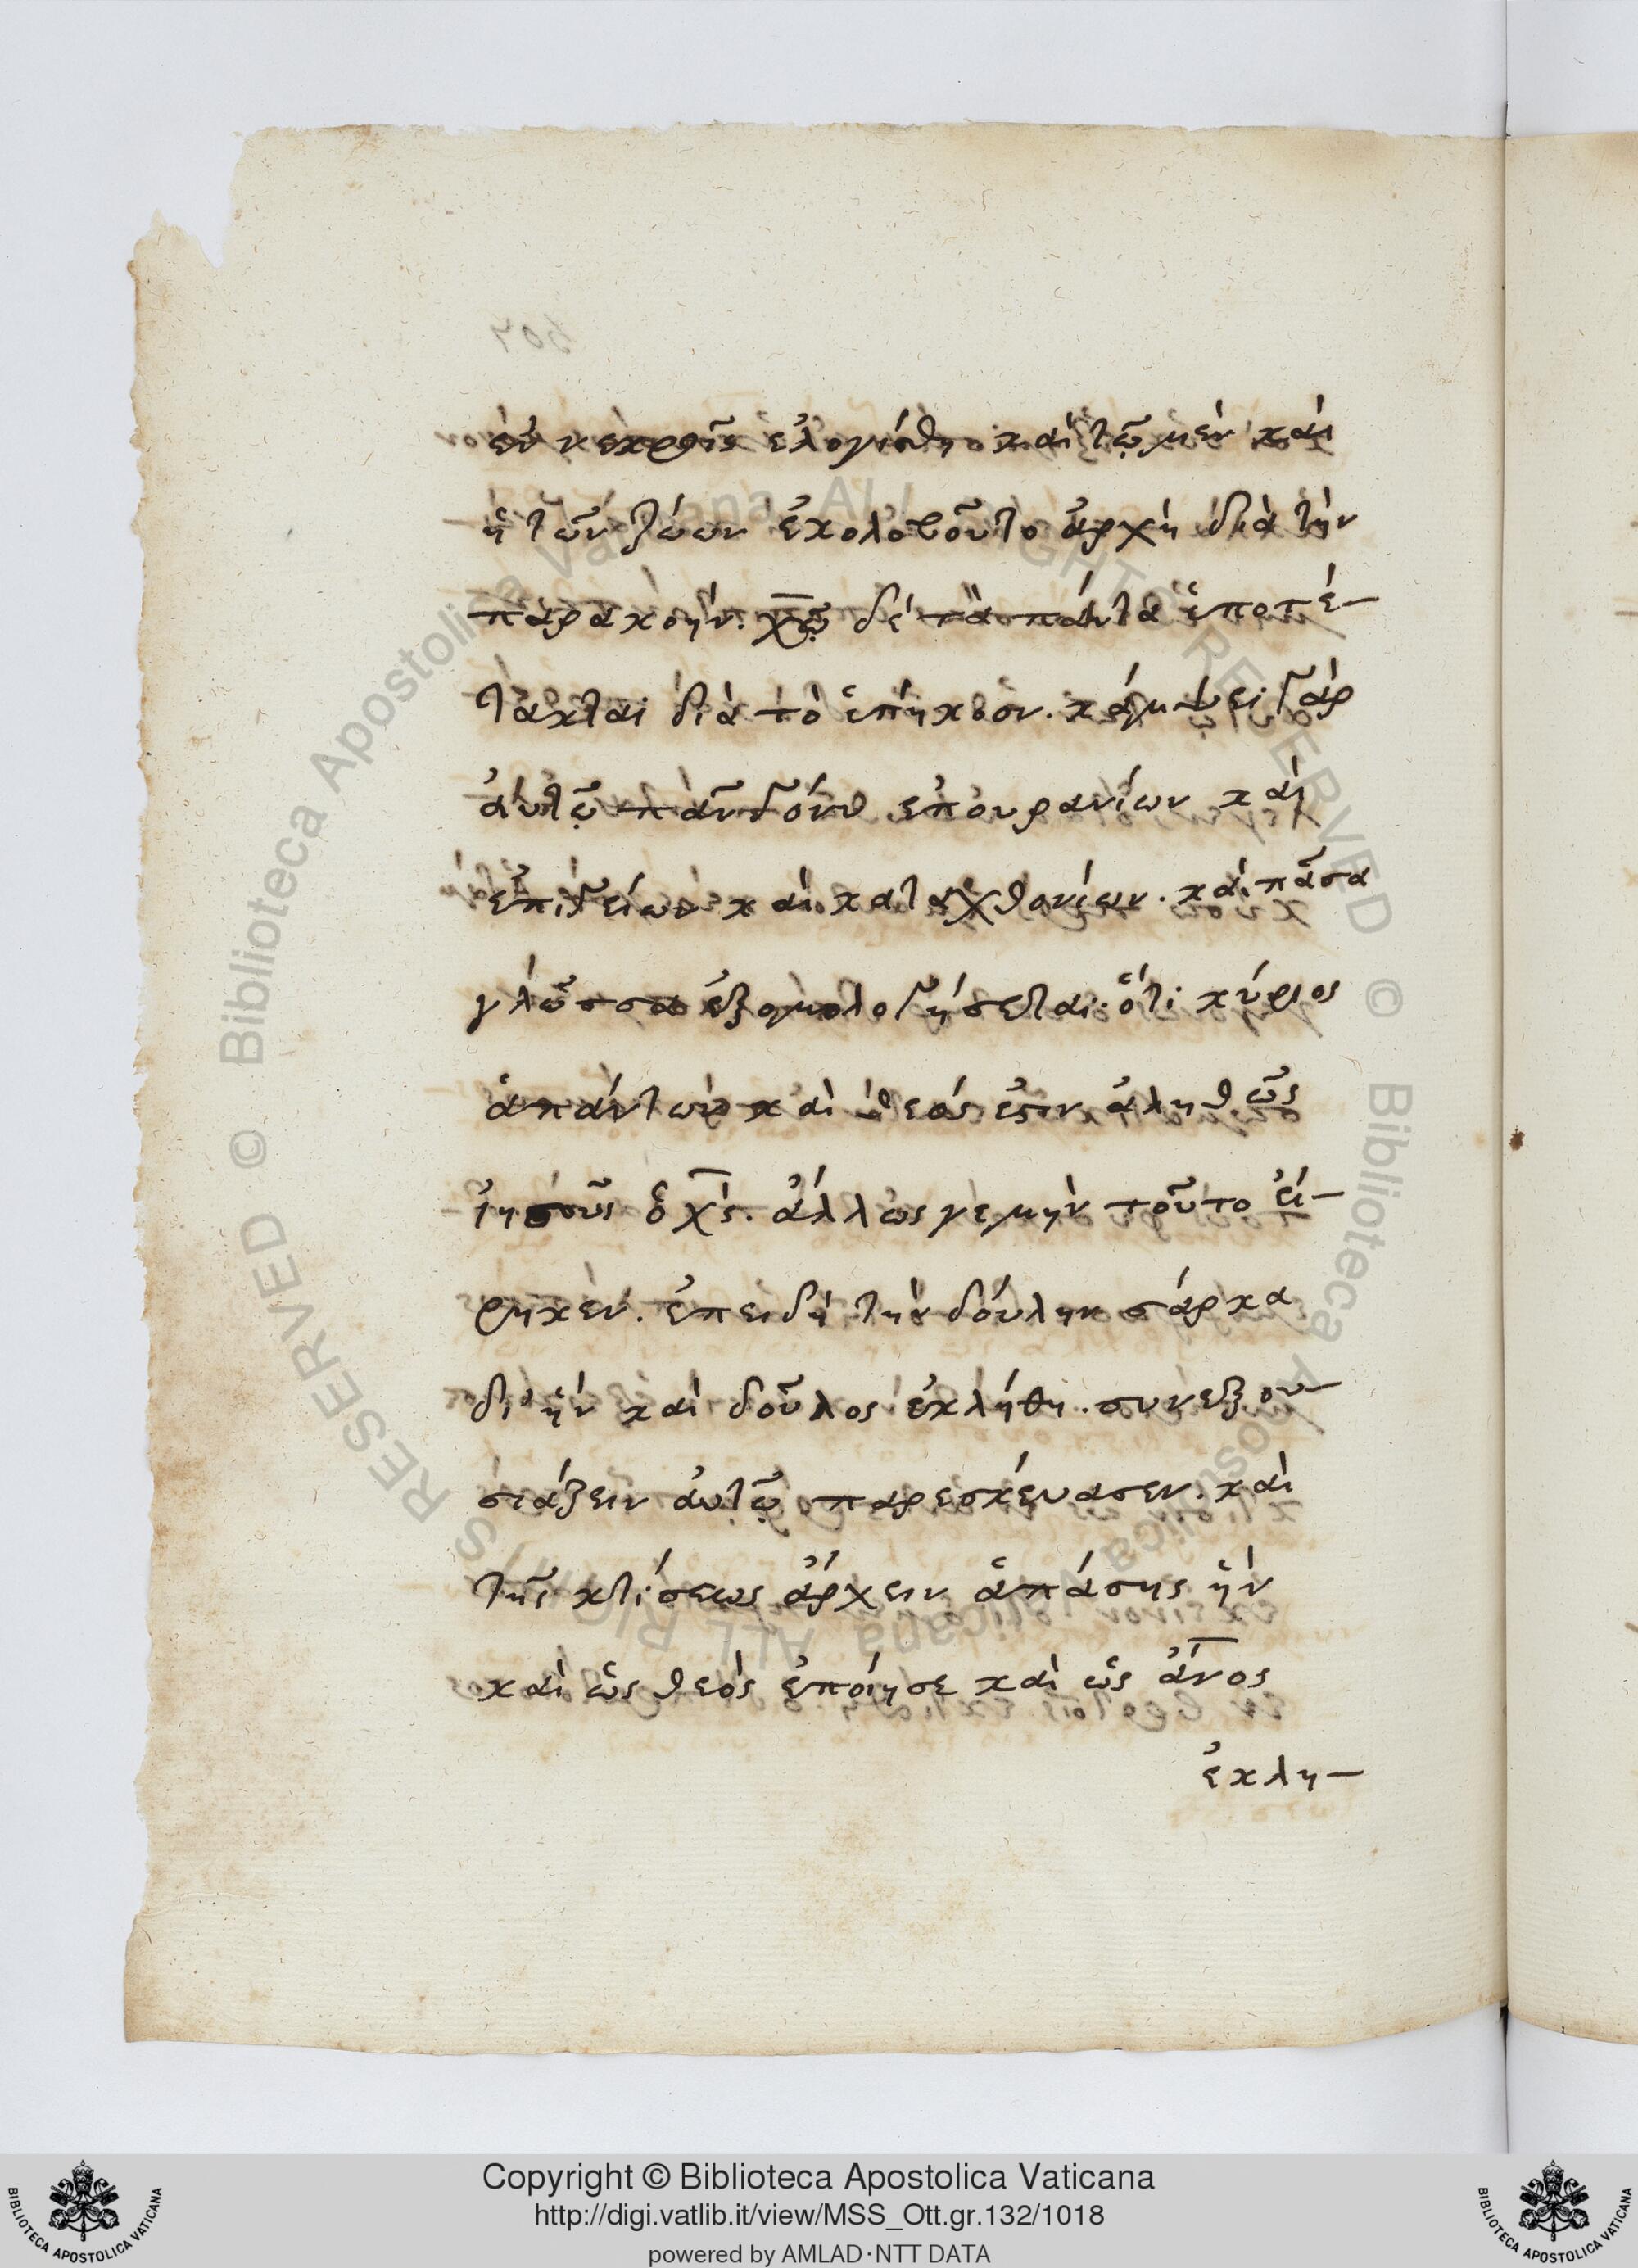 ἐν νεκροῖς ἐλογίσθη. καὶ τῷ μὲν καὶ
ἡ τῶν ζώων ἐκολοβοῦτο ἀρχὴ διὰ τὴν
παρακοήν. χ̅ῷ δὲ τὰ πάντα ὑποτέ-
τακται διὰ τὸ ὑπήκοον. κάμψει γὰρ
αὐτῷ πᾶν γόνυ ἐπουρανίων καὶ
ἐπιγείων καὶ καταχθονίων. καὶ πᾶσα
γλῶσσα ἐξομολογήσεται. ὅτι κύριος
ἁπάντων καὶ θεός ἐστιν ἀληθῶς
ἰησοῦς ὁ χ̅ς. ἄλλως γε μὴν τοῦτο εἴ-
ρηκεν. ἐπειδὴ τὴν δούλην σάρκα
δι' ἣν καὶ δοῦλος ἐκλήθη. συνεξου-
σιάζειν αὐτῷ παρεσκεύασεν. καὶ
τῆς κτίσεως ἄρχειν ἁπάσης ἣν
καὶ ὡς θεὸς ἐποίησε καὶ ὡς ἄν̅ος
ἐκλη-
Copyright © Biblioteca Apostolica Vaticana
http://digi.vatlib.it/view/MSS_Ott.gr.132/1018
powered by AMLAD·NTT DATA
BIBLIOTECA APOSTOLICA VATICANA
BIBLIOTECA APOSTOLICA VATICANA